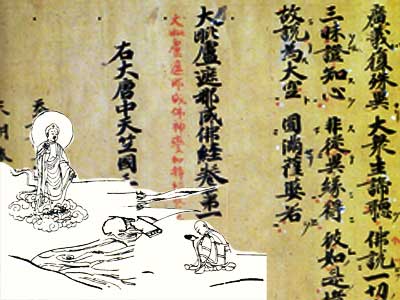 廣義復殊異 大衆主諦聽 佛說一切
三昧證知心 非從異緣得 彼如是境
故說為大空 圓滿薩婆若
大毗盧遮那成佛經卷第一
大毗盧遮那成佛神變加持
右大唐中天竺國三